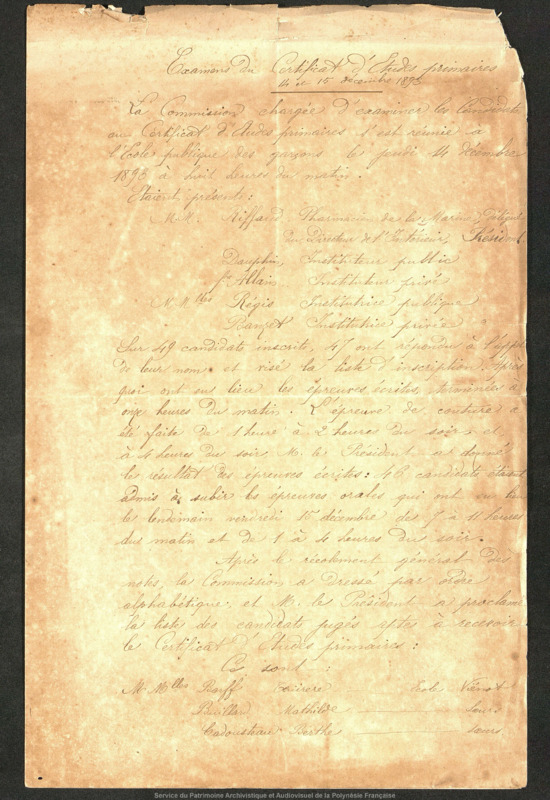 Examens du Certificat d'Etudes primaires
14 et 15 décembre 1893
La Commission chargée d'examiner les Candidats
au Certificat d'Etudes primaires s'est réunie à
l'Ecole publique des garçons le jeudi 14 décembre
1893 à huit heures du matin.
Etaient présents:
M.M. Riffaud Pharmacien de la Marine, délégué
du Directeur de l'Intérieur, Président
Dauphin, Instituteur public
fr Allain Instituteur privé
M.Mlles Régis Institutrice publique
Banzet Institutrice privée
Sur 49 candidats inscrits, 47 ont répondu à l'appel
de leur nom et visé la liste d'inscription. Après
quoi ont eu lieu les épreuves écrites, terminées à
onze heures du matin. L'épreuve de couture a
été faite de 1 heure à 2 heures du soir et,
à 4 heures du soir M. le Président a donné
les résultat des épreuves écrites: 46 candidats étaient
admis à subir les épreuves orales qui ont eu lieu
le lendemain vendredi 15 décembre des 7 à 11 heures
du matin et de 1 à 4 heures du soir.
Après le récolement général des
notes, la Commission a dressé par ordre
alphabétique, et M. le Président a proclamé
la liste des candidats jugés aptes à recevoir
le Certificat d'Etudes primaires:
Ce sont:
M. Mlles Ecole Viénot
Mathilde Sœurs
Cadousteau Berthe sœurs
Service du Patrimoine Archivistique et Audiovisuel de la Polynésie Française